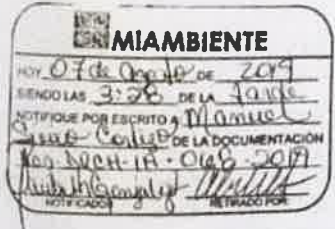 MIAMBIENTE
HOY 07 de Agosto DE 2019
SIENDO LAS 3:28 DE LA Tarde
NOTIFIQUE POR ESCRITO A Manuel
DE LA DOCUMENTACIÓN
DRCH-IA-068-2019
González
NOTIFICADOR RETIRADO POR